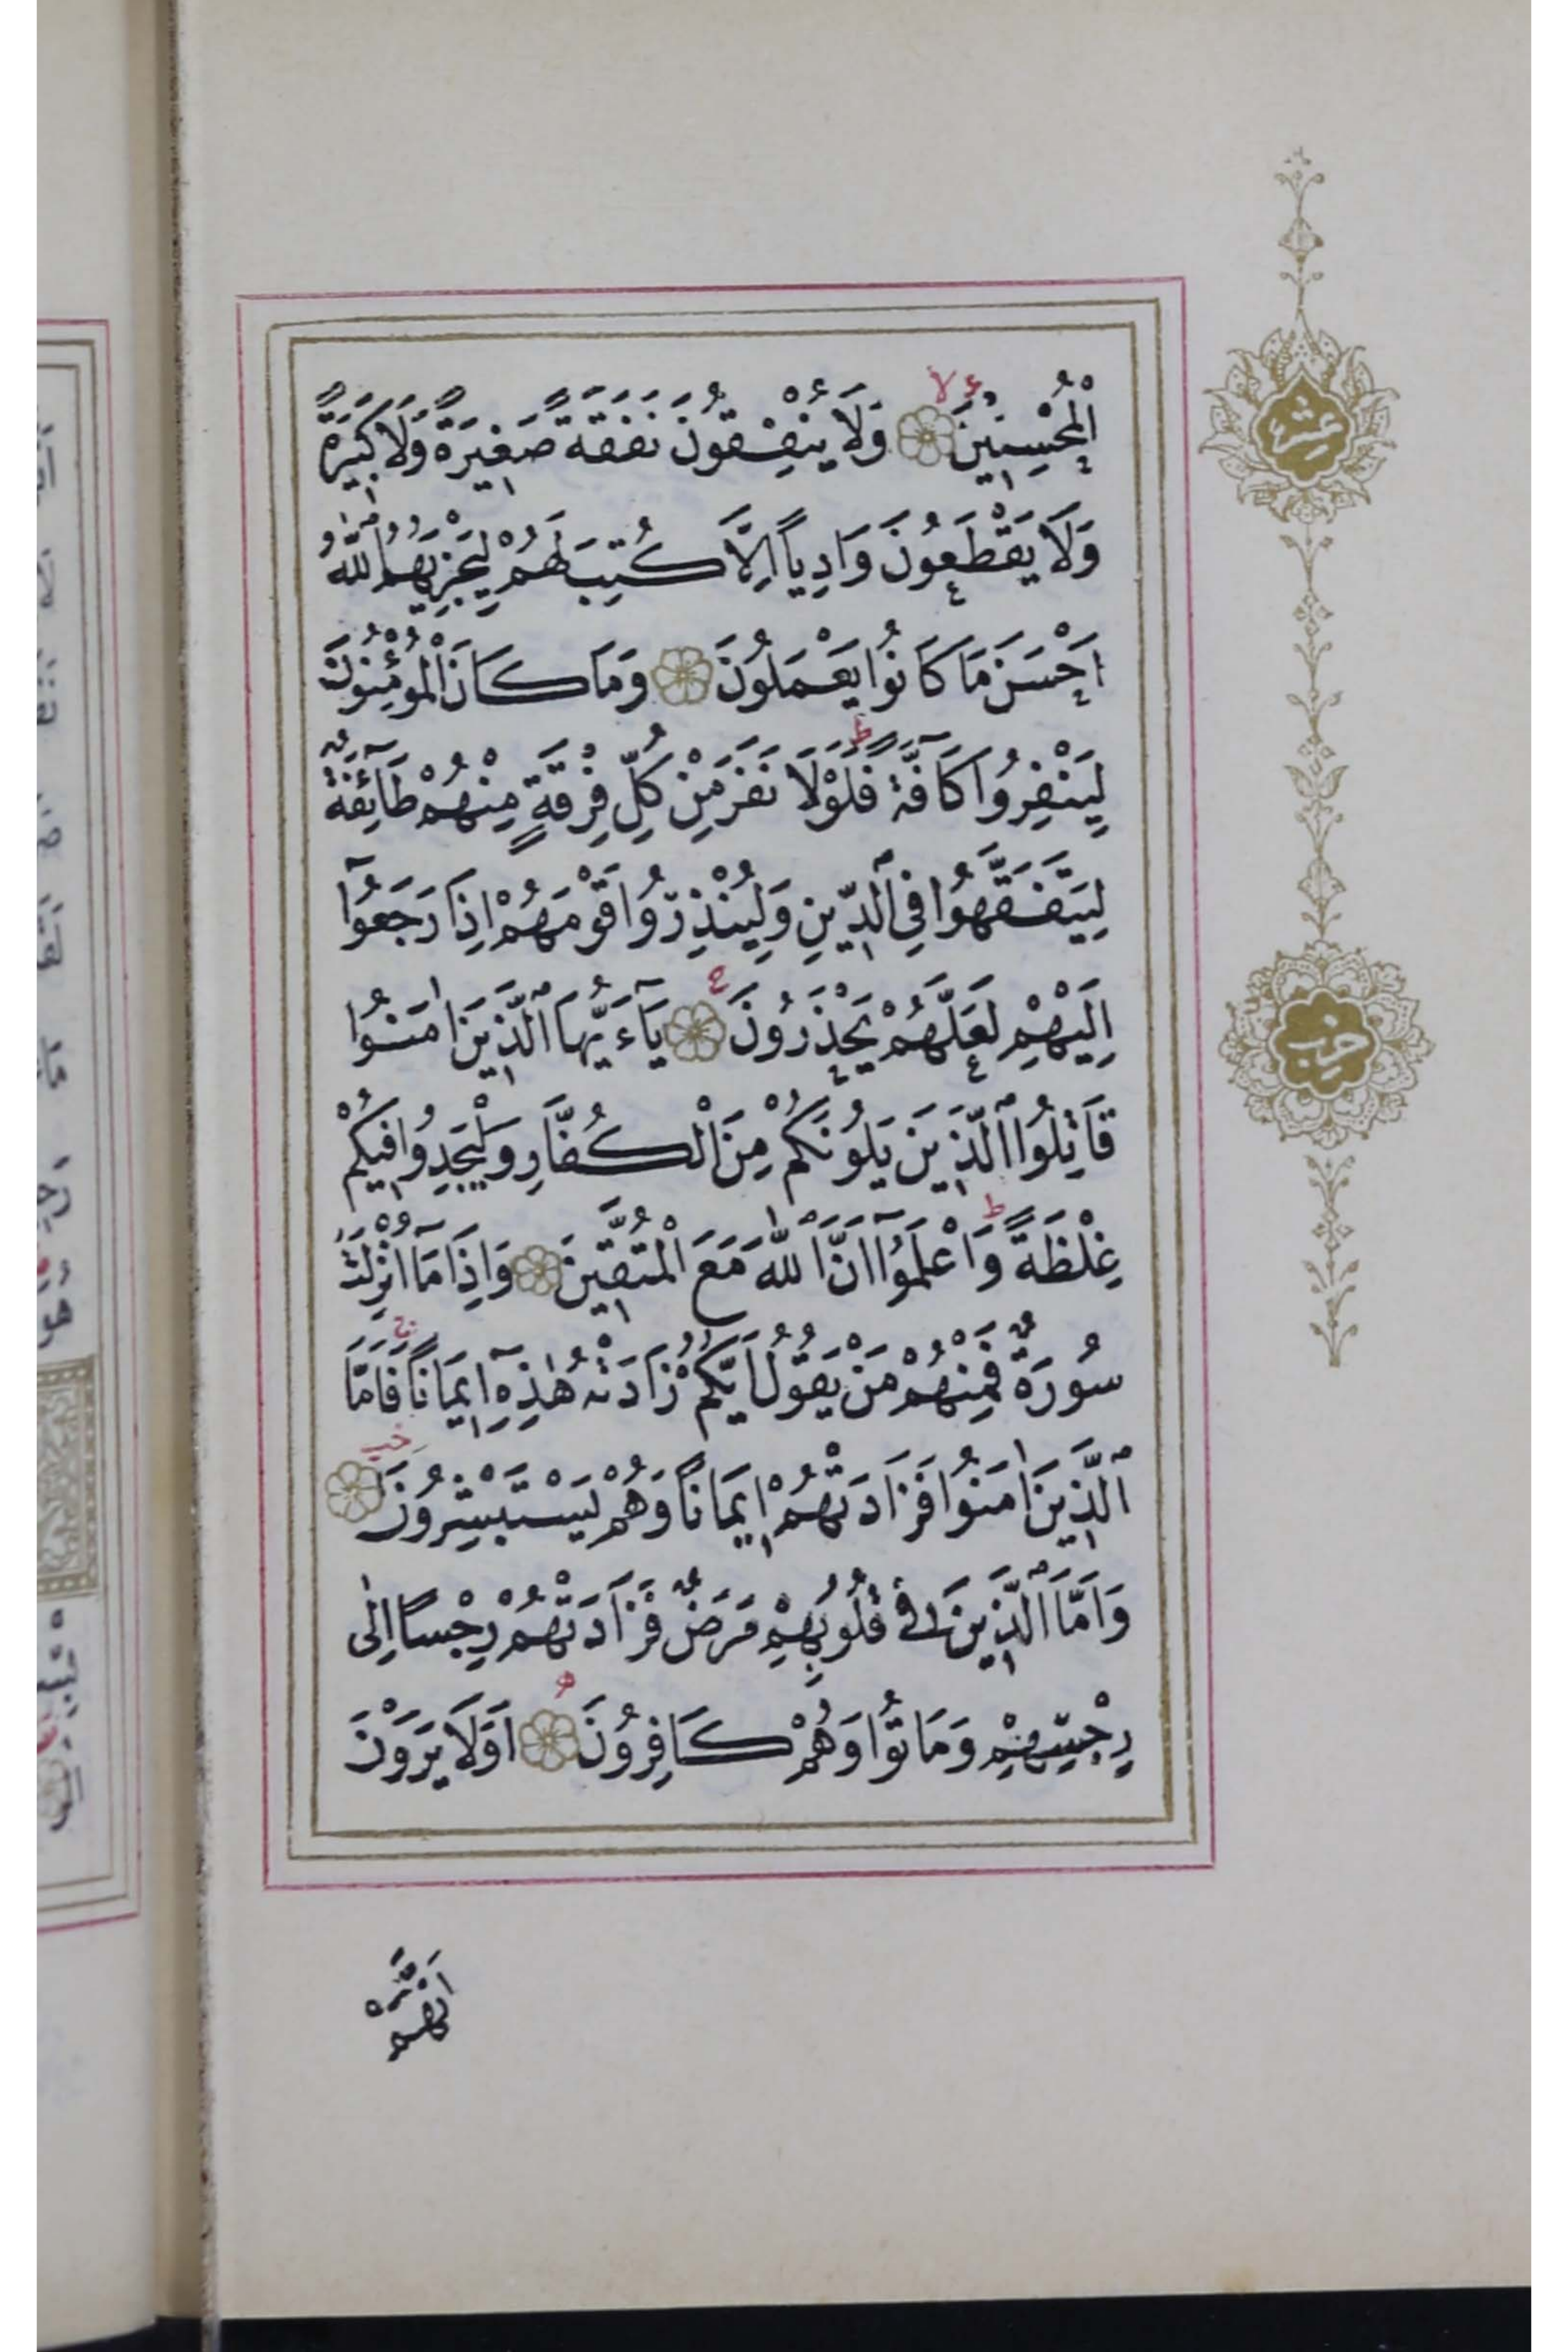 الْمُحْسِنِينَ وَلَا يُنْفِقُونَ نَفَقَةً صَغِيرَةً وَلَا كَبِيرَةً
وَلَا يَقْطَعُونَ وَادِياً اِلَّا كُتِبَ لَهُمْ لِيَجْزِيَهُمُ اللّٰهُ
اَحْسَنَ مَا كَانُوا يَعْمَلُونَ وَمَا كَانَ الْمُؤْمِنُونَ
لِيَنْفِرُوا كَآفَّةً فَلَوْلَا نَفَرَ مِنْ كُلِّ فِرْقَةٍ مِنْهُمْ طَآئِفَةٌ
لِيَتَفَقَّهُوا فِي الدِّينِ وَلِيُنْذِرُوا قَوْمَهُمْ اِذَا رَجَعُوٓا
اِلَيْهِمْ لَعَلَّهُمْ يَحْذَرُونَ يَآءَيُّهَا الَّذِينَ اٰمَنُوا
قَاتِلُوا الَّذِينَ يَلُونَكُمْ مِنَ الْكُفَّارِ وَلْيَجِدُوا فِيكُمْ
غِلْظَةً وَاعْلَمُوٓا اَنَّ اللّٰهَ مَعَ الْمُتَّقِينَ وَاِذَا مَآ اُنْزِلَتْ
سُورَةٌ فَمِنْهُمْ مَنْ يَقُولُ اَيُّكُمْ زَادَتْهُ هٰذِهِٓ اِيمَاناً فَاَمَّا
الَّذِينَ اٰمَنُوا فَزَادَتْهُمْ اِيمَاناً وَهُمْ يَسْتَبْشِرُونَ
وَاَمَّا الَّذِينَ فِي قُلُوبِهِمْ مَرَضٌ فَزَادَتْهُمْ رِجْساً اِلٰى
رِجْسِهِمْ وَمَاتُوا وَهُمْ كَافِرُونَ اَوَلَا يَرَوْنَ
اَنَّهُمْ
عشر
حزب